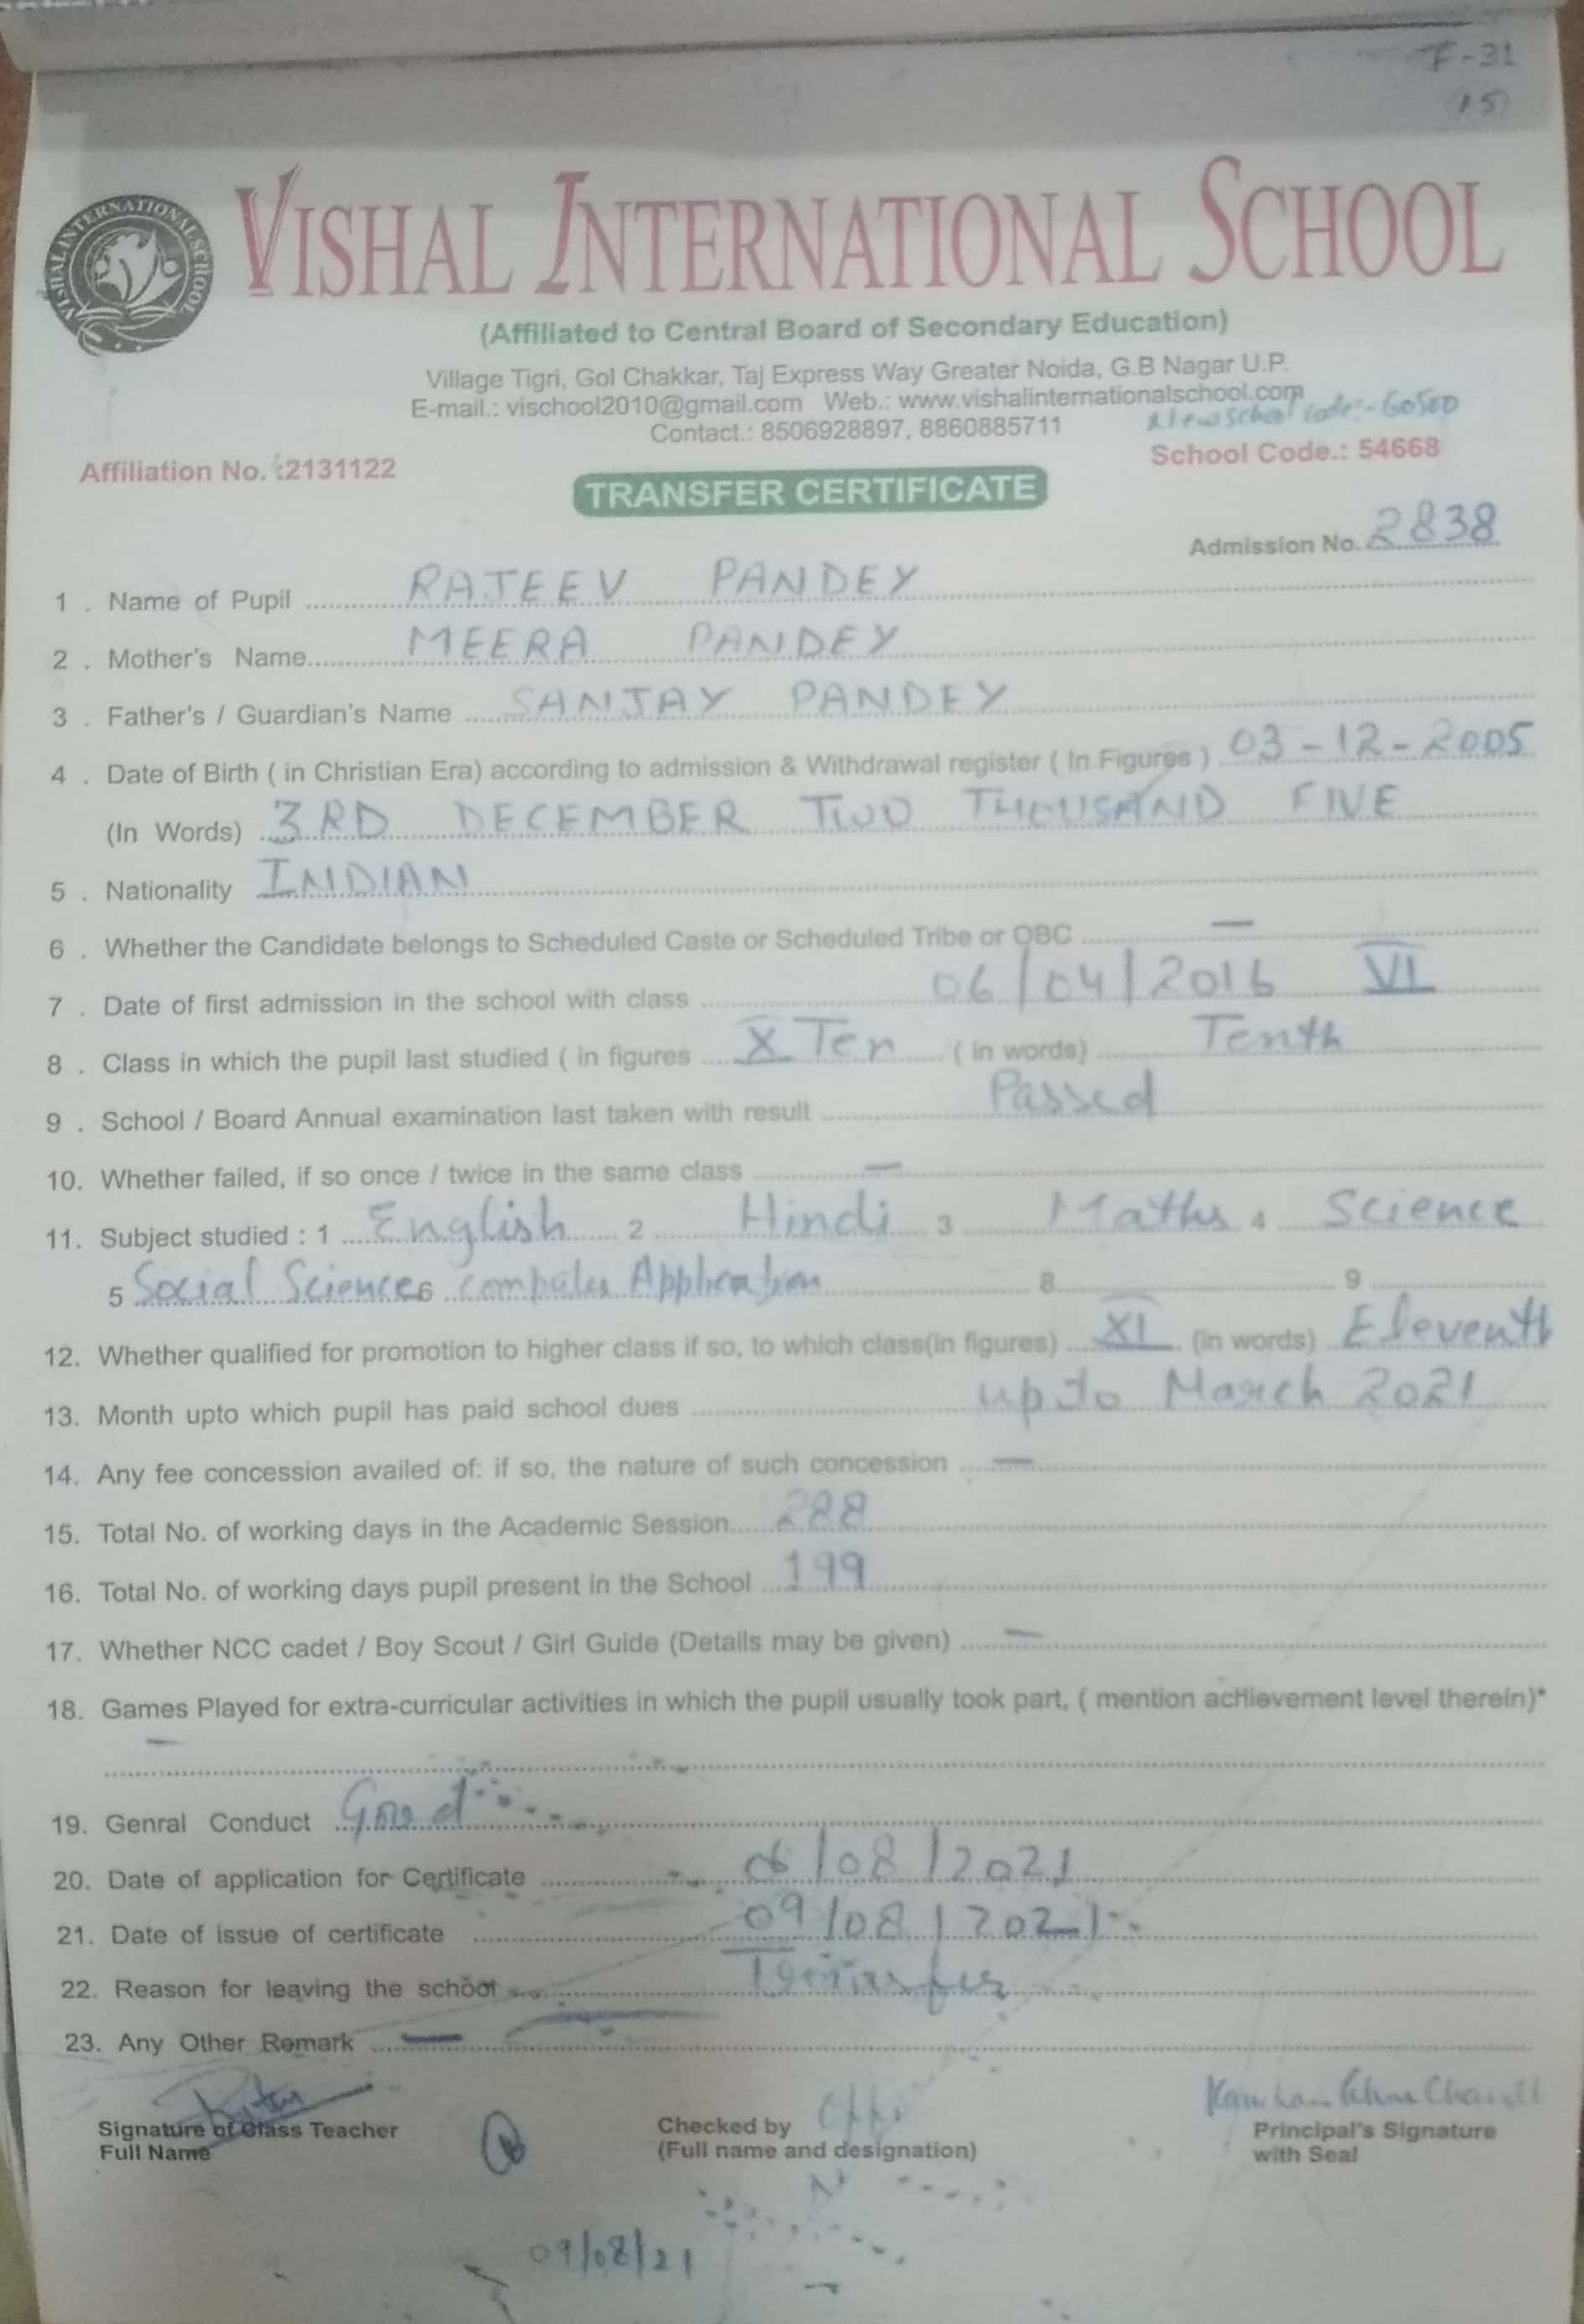 F-31
15
VISHAL INTERNATIONAL SCHOOL
VISHAL INTERNATIONAL SCHOOL
(Affiliated to Central Board of Secondary Education)
Village Tigri, Gol Chakkar, Taj Express Way Greater Noida, G.B Nagar U.P.
E-mail.: vischool2010@gmail.com Web.: www.vishalinternationalschool.com
New School code:- 60500
Contact.: 8506928897, 8860885711
Affiliation No. :2131122 School Code.: 54668
TRANSFER CERTIFICATE
Admission No. 2838
1 . Name of Pupil RAJEEV PANDEY
2 . Mother's Name MEERA PANDEY
3 . Father's / Guardian's Name SANJAY PANDEY
4 . Date of Birth ( in Christian Era) according to admission & Withdrawal register ( In Figures ) 03-12-2005
(In Words) 3RD DECEMBER TWO THOUSAND FIVE
5 . Nationality INDIAN
6 . Whether the Candidate belongs to Scheduled Caste or Scheduled Tribe or OBC —
7 . Date of first admission in the school with class 06/04/2016 VI
8 . Class in which the pupil last studied ( in figures X Ten ( in words) Tenth
9 . School / Board Annual examination last taken with result Passed
10. Whether failed, if so once / twice in the same class —
11. Subject studied : 1 English 2 Hindi 3 Maths 4 Science
5 Social Science 6 Computer Application 8 9
12. Whether qualified for promotion to higher class if so, to which class(in figures) XI (in words) Eleventh
13. Month upto which pupil has paid school dues up to March 2021
14. Any fee concession availed of: if so, the nature of such concession —
15. Total No. of working days in the Academic Session 288
16. Total No. of working days pupil present in the School 199
17. Whether NCC cadet / Boy Scout / Girl Guide (Details may be given) —
18. Games Played for extra-curricular activities in which the pupil usually took part, ( mention achievement level therein)*
—
19. Genral Conduct Good
20. Date of application for Certificate 06/08/2021
21. Date of issue of certificate 09/08/2021
22. Reason for leaving the school Transfer
23. Any Other Remark —
Signature of Class Teacher
Full Name
Checked by
(Full name and designation)
Principal's Signature
with Seal
09/08/21